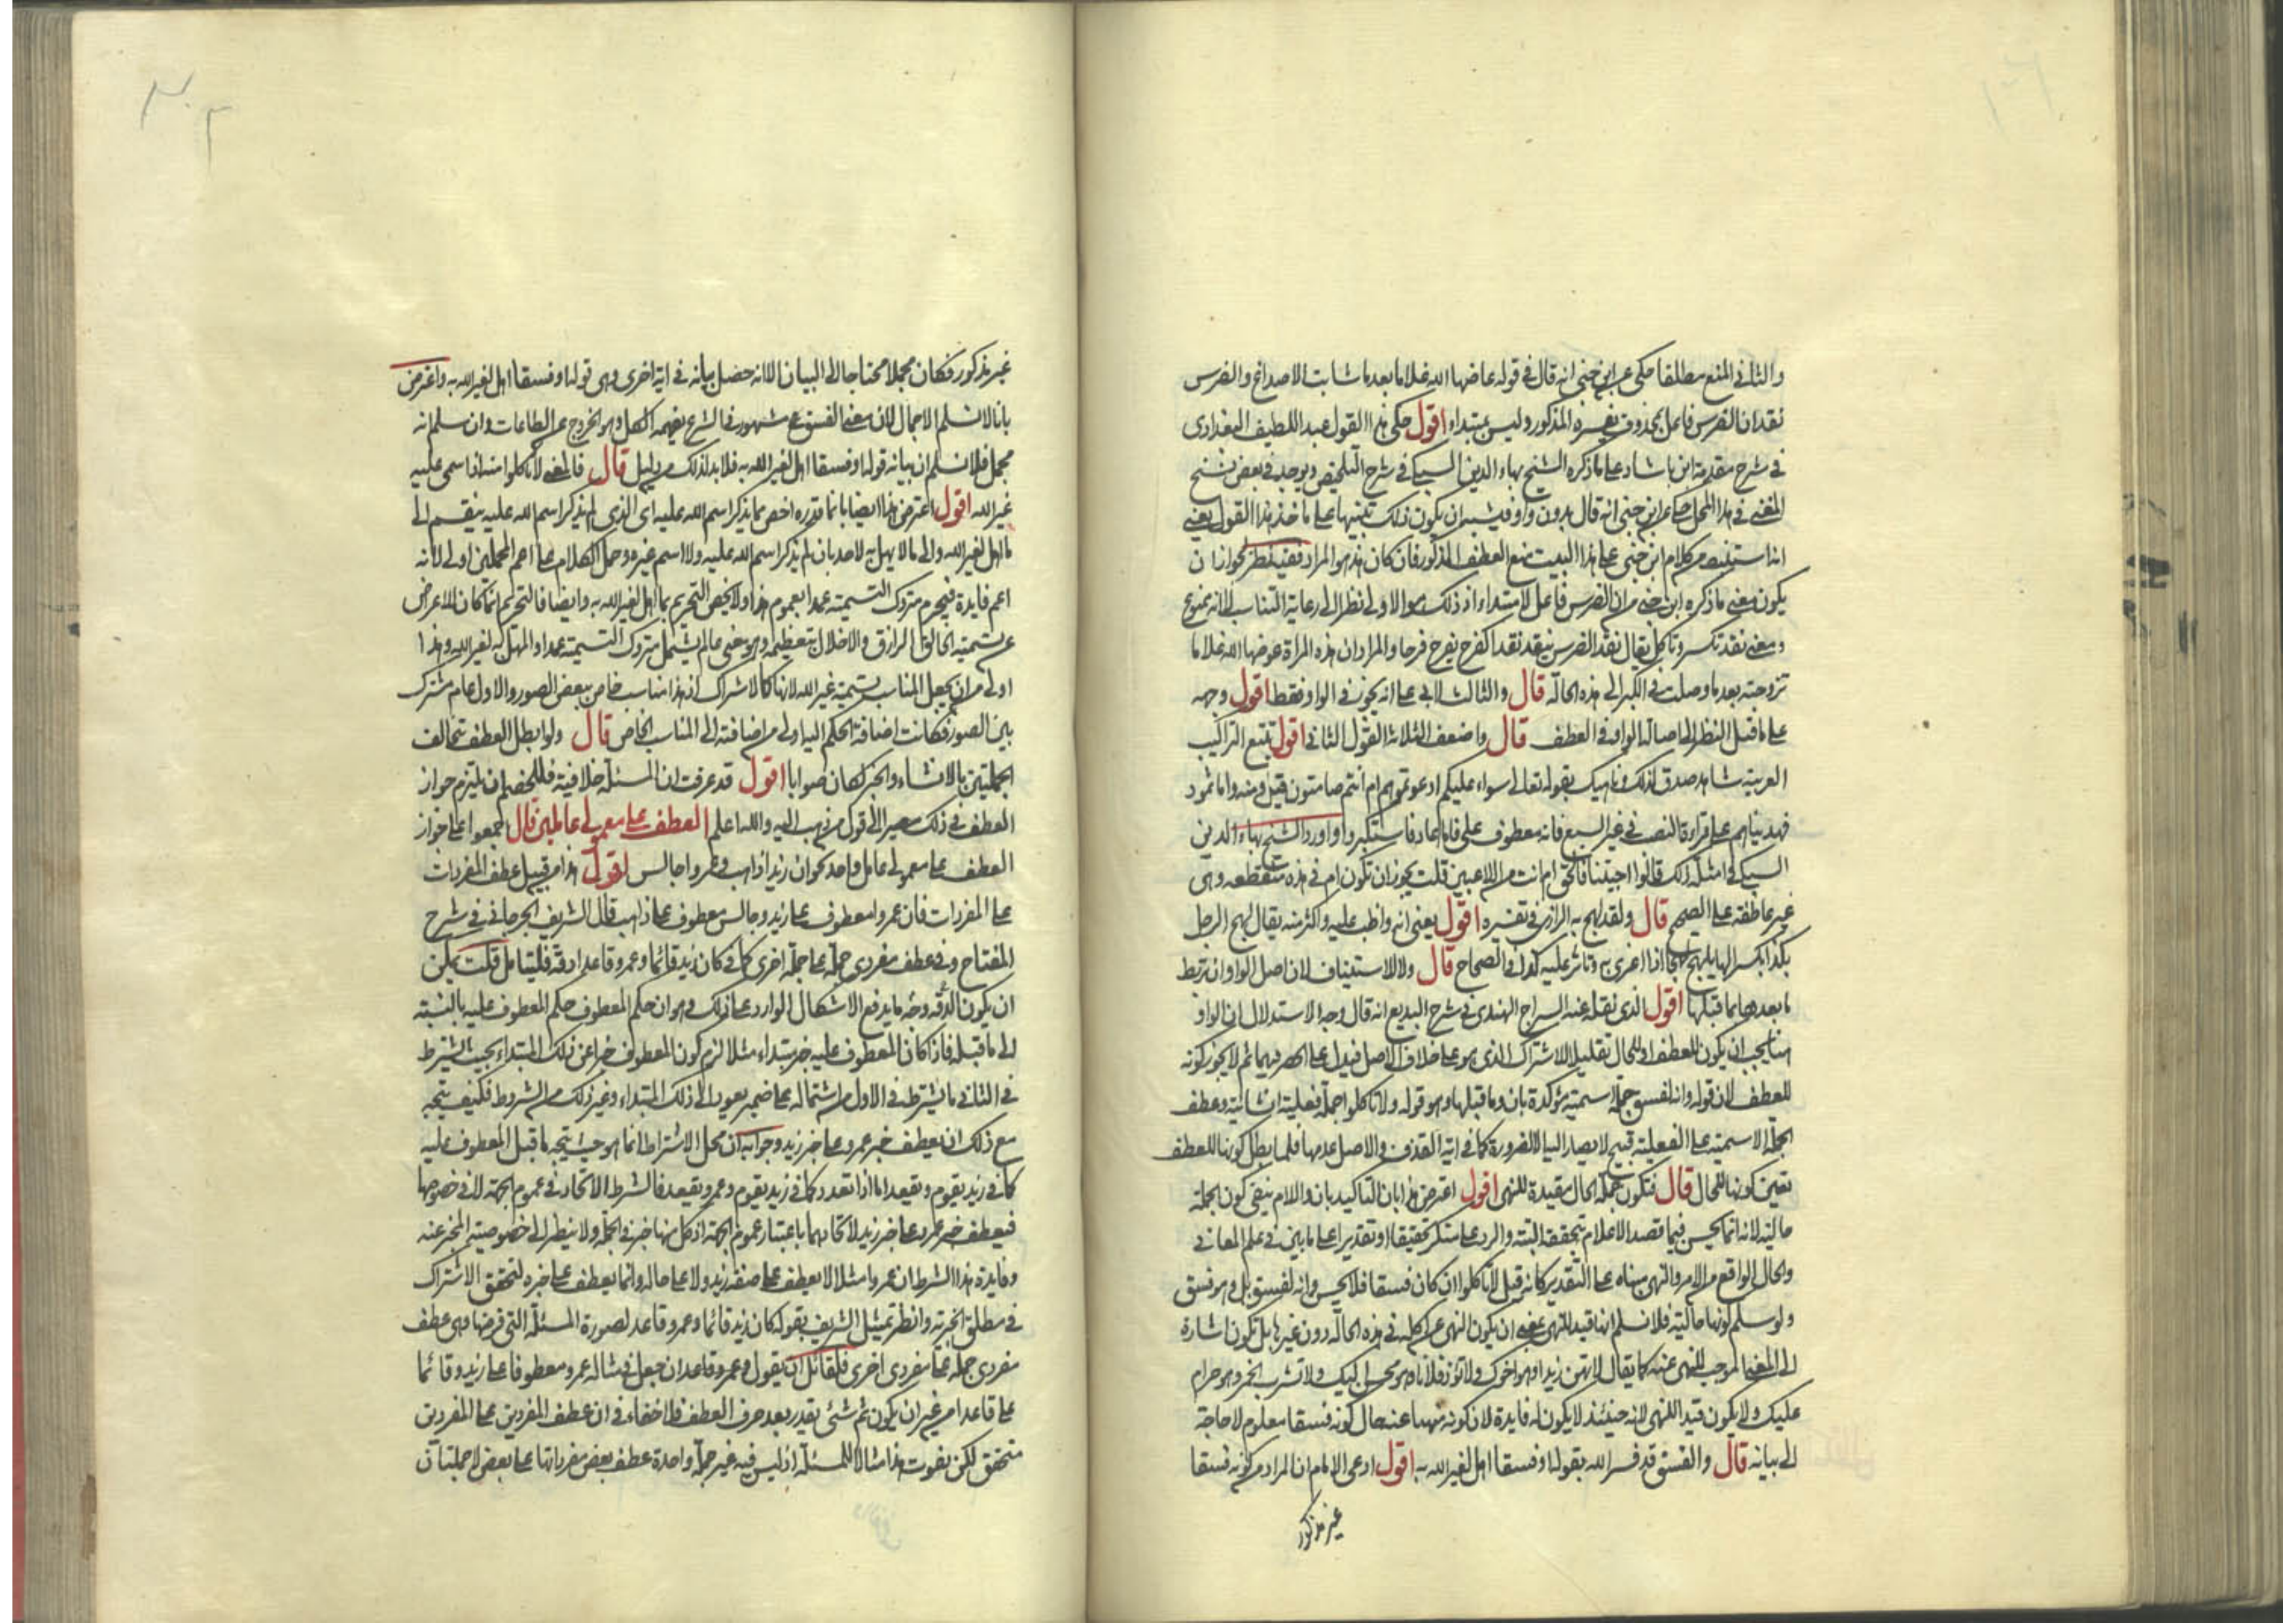 والثاني المنع مطلقا حكي عن ابن جني انه قال في قوله عاضها الله غلاما بعد ما شابت الاصداغ والضرس
نقد ان الضرس فاعل بمحذوف يفسره المذكور وليس بمبتداء اقول حكى هذا القول عبد اللطيف البغدادى
في شرح مقدمة ابن بابشاد على ما ذكره الشيخ بهاء الدين السبكي في شرح التلخيص ويوجد في بعض نسخ
المغني في هذا المحل حكي عن ابن جني انه قال بدون واو فيشبه ان يكون ذلك تنبيها على ماخذ هذا القول يعني
انه استنبط من كلام ابن جني على هذا البيت منع العطف المذكور فان كان هذا هو المراد ففيه نظر لجواز ان
يكون معنى ما ذكره ابن جني من ان الضرس فاعل لا مبتداء اذ ذلك هو الاولى نظرا الى رعاية التناسب لا انه ممنوع
ومعنى نقد تكسر وتاكل يقال نقد الضرس ينقد نقدا كفرح يفرح فرحا والمراد ان هذه المراة عوضها الله غلاما
تزوجته بعد ما وصلت في الكبر الى هذه الحالة قال والثالث لابي على انه يجوز في الواو فقط اقول وجهه
على ما قيل النظر الى اصالة الواو في العطف قال واضعف الثلاثة القول الثاني اقول تتبع التراكيب
العربية شاهد صدق لذلك وناهيك بقوله تعالى سواء عليكم ادعوتموهم ام انتم صامتون قيل ومنه واما ثمود
فهديناهم على قراءة النصب في غير السبع فانه معطوف على فاما عاد فاستكبروا واورد الشيخ بهاء الدين
السبكي في امثلة ذلك قالوا اجئتنا بالحق ام انت من اللاعبين قلت يجوز ان تكون ام في هذه منقطعه وهى
غير عاطفة على الصحيح قال ولقد لهج به الرازى في تفسيره اقول يعنى انه واظب عليه واكثر منه يقال لهج الرجل
بكذا بكسر الها يلهج لهجا اذا اغرى به وثابر عليه كذا في الصحاح قال ولا للاستيناف لان اصل الواو ان تربط
ما بعدها بما قبلها اقول الذى نقله عنه السراج الهندى في شرح البديع انه قال وجه الاستدلال ان الواو
هنا يجب ان يكون للعطف او للحال تقليلا للاشتراك الذى هو على خلاف الاصل فيدل على الحصر فيهما ثم لا يجوز كونه
للعطف لان قوله وانه لفسق جملة اسمية مؤكدة بان وما قبلها وهو قوله ولا تاكلوا جملة فعلية انشائية وعطف
الجملة الاسمية على الفعلية قبيح لا يصار اليه الا لضرورة كما في اية القذف والاصل عدمها فلما بطل كونها للعطف
تعين كونها للحال قال فتكون جملة الحال مقيدة للنهى اقول اعترض هذا بان التاكيد بان واللام ينفي كون الجملة
حالية لانه انما يحسن فيما قصد الاعلام بتحققه البتة والرد على منكر تحقيقا او تقديرا على ما بين في علم المعاني
والحال الواقع من الامر والنهى مبناه على التقدير كانه قيل لا تاكلوا ان كان فسقا فلا يحسن وانه لفسق بل وهو فسق
ولو سلم كونها حالية فلا نسلم انها قيد للنهي بمعنى ان يكون النهى عن اكله في هذه الحالة دون غيرها بل تكون اشارة
الى المعنى الموجب للنهى عنه كما يقال لا تهن زيدا وهو اخوك ولا تؤذ فلانا وهو محسن اليك ولا تشرب الخمر وهو حرام
عليك ولا يكون قيدا للنهى لانه حينئذ لا يكون له فايدة لان كونه منهيا عنه حال كونه فسقا معلوم لا حاجة
الى بيانه قال والفسق قد فسر الله بقوله او فسقا اهل لغير الله به اقول ادعى الامام ان المراد من كونه فسقا
غير مذكور
غير مذكور فكان مجملا محتاجا الى البيان الا انه حصل بيانه في اية اخرى وهى قوله او فسقا اهل لغير الله به واعترض
بانا لا نسلم الاجمال لان معنى الفسق مشهور في الشرع يفهمه الكل وهو الخروج عن الطاعات وان سلم انه
مجمل فلا نسلم ان بيانه قوله او فسقا اهل لغير الله به فلا بد لذلك من دليل قال فالمعنى لا تاكلوا منه اذا سمى عليه
غير الله اقول اعترض هذا ايضا بان ما قدره اخص مما يذكر اسم الله عليه اى الذى لم يذكر اسم الله عليه ينقسم الى
ما اهل لغير الله والى ما لا يهل به لاحد بان لم يذكر اسم الله عليه ولا اسم غيره وحمل الكلام على اعم المحملين اولى لانه
اعم فايدة فيحرم متروك التسمية عمدا بعموم هذا ولا يخص التحريم بما اهل لغير الله به وايضا فالتحريم انما كان للاعراض
عن تسمية الخالق الرازق والاخلال بتعظيمه وهو معنى عام يشمل متروك التسمية عمدا والمهل به لغير الله وهذا
اولى من ان يجعل المناسب تسمية غير الله لانها كالاشراك اذ هذا مناسب خاص ببعض الصور والاول عام مشترك
بين الصور فكانت اضافة الحكم اليه اولى من اضافته الى المناسب الخاص قال ولو ابطل العطف بتخالف
الجملتين بالانشاء والخبر لكان صوابا اقول قد عرفت ان المسئلة خلافية فللخصم ان يلتزم جواز
العطف في ذلك مصيرا الى قول من ذهب اليه والله اعلم العطف على معمولي عاملين قال اجمعوا على جواز
العطف على معمولي عامل واحد نحو ان زيدا ذاهب وعمروا جالس اقول هذا من قبيل عطف المفردات
على المفردات فان عمروا معطوف على زيد وجالس معطوف على ذاهب قال الشريف الجرجاني في شرح
المفتاح وفي عطف مفردى جملة على جملة اخرى كما في كان زيد قائما وعمرو قاعدا دقة فليتامل قلت يمكن
ان يكون الدقه وجه ما يدفع الاشكال الوارد على ذلك وهو ان حكم المعطوف حكم المعطوف عليه بالنسبة
الى ما قبله فاذا كان المعطوف عليه خبر مبتداء مثلا لزم كون المعطوف خبرا عن ذلك المبتداء بحيث يشترط
في الثاني ما يشترط في الاول من اشتماله على ضمير يعود الى ذلك المبتداء وغير ذلك من الشروط فكيف يتجه
مع ذلك ان يعطف خبر عمرو على خبر زيد وجوابه ان محل الاشتراط انما هو حيث يتجه ما قبل المعطوف عليه
كما في زيد يقوم ويقعد اما اذا تعدد كما في زيد يقوم وعمرو يقعد فالشرط الاتحاد في عموم الجهة لا في خصوصها
فيعطف خبر عمرو على خبر زيد لاتحادهما باعتبار عموم الجهة اذ كل منهما خبر في الجملة ولا ينظر الى خصوصية المخبر عنه
وفايدة هذا الشرط ان عمروا مثلا لا يعطف على صفة زيد ولا على حاله وانما يعطف على خبره لتحقق الاشتراك
في مطلق الخبرية وانظر تمثيل الشريف بقوله كان زيد قائما وعمرو قاعدا لصورة المسئلة التى فرضها وهى عطف
مفردى جملة على مفردى اخرى فلقائل ان يقول وعمرو قاعدا ان جعل في مثاله عمرو معطوفا على زيد وقائما
على قاعدا من غير ان يكون ثم شئ يقدر بعد حرف العطف فلا خفاء في ان عطف المفردين على المفردين
متحقق لكن يفوت هذا مثالا للمسئلة اذ ليس فيه غير جملة واحدة عطف بعض مفرداتها على بعض لا جملتان